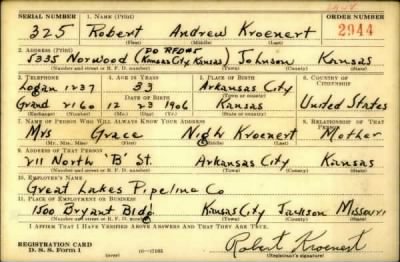 SERIAL NUMBER 1. NAME (Print) ORDER NUMBER
325 Robert Andrew Kroenert 2944
(First) (Middle) (Last)
2. ADDRESS (Print)
PO RFD#5
5335 Norwood (Kansas City, Kansas) Johnson Kansas
(Number and street or R. F. D. number) (Town) (County) (State)
3. TELEPHONE 4. AGE IN YEARS 5. PLACE OF BIRTH 6. COUNTRY OF CITIZENSHIP
Logan 1237 33 Arkansas City
(Town or county)
Grand 2160 12 23 1906 Kansas United States
(Exchange) (Number) (Mo.) (Day) (Yr.) (State or country)
7. NAME OF PERSON WHO WILL ALWAYS KNOW YOUR ADDRESS 8. RELATIONSHIP OF THAT PERSON
Mrs Grace Nigh Kroenert Mother
(Mr., Mrs., Miss) (First) (Middle) (Last)
9. ADDRESS OF THAT PERSON
211 North 'B' St. Arkansas City Kansas
(Number and street or R. F. D. number) (Town) (County) (State)
10. EMPLOYER'S NAME
Great Lakes Pipeline Co
11. PLACE OF EMPLOYMENT OR BUSINESS
1500 Bryant Bldg Kansas City Jackson Missouri
(Number and street or R. F. D. number) (Town) (County) (State)
I AFFIRM THAT I HAVE VERIFIED ABOVE ANSWERS AND THAT THEY ARE TRUE.
REGISTRATION CARD
D. S. S. Form 1
Robert Kroenert
(Registrant's signature)